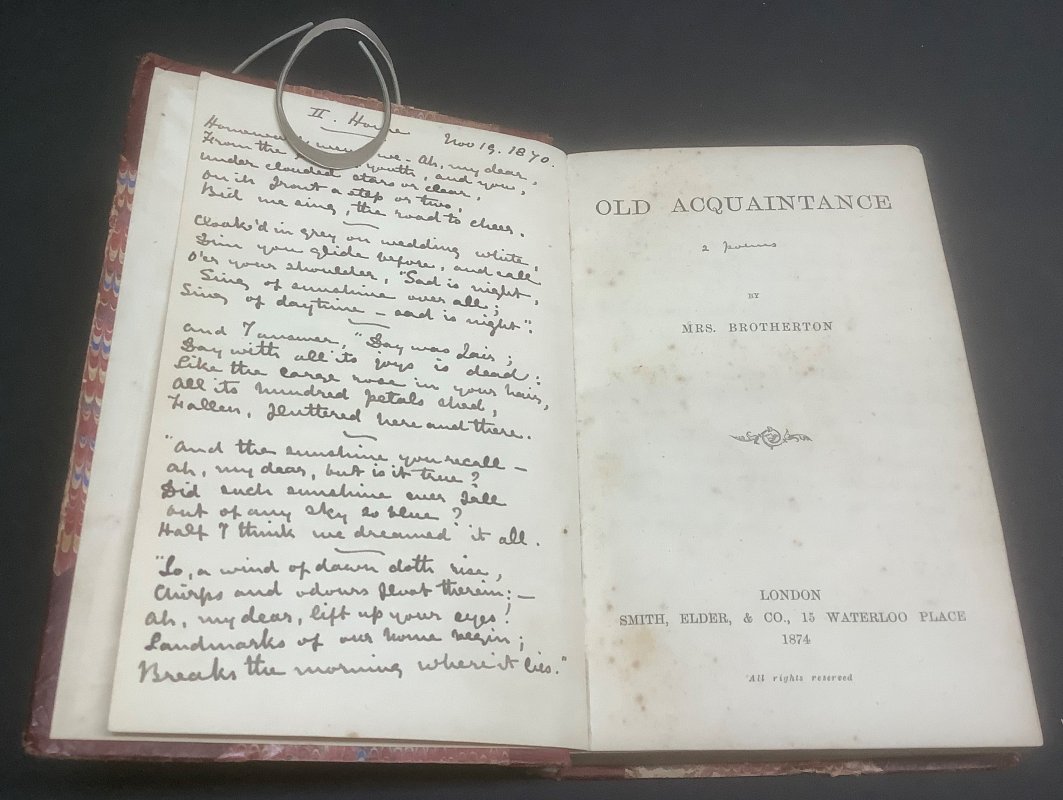 II. Home Nov 19. 1870.
Homeward went we - Ah, my dear,
From the youth, and you,
Under clouded stars or clear,
On in front a step or two,
Bid me sing, the road to cheer.
Cloak'd in grey on wedding white,
Dim you glide before, and call
O'er your shoulder, "Sad is night,
Sing of sunshine over all;
Sing of daytime - sad is night".
And I answer, "Day was fair;
Day with all its joys is dead:
Like the large rose in your hair,
All its hundred petals shed,
Fallen, fluttered here and there.
"And the sunshine you recall -
Ah, my dear, but is it true?
Did such sunshine ever fall
Out of any sky so blue?
Half I think we dreamed it all.
"Lo, a wind of dawn doth rise,
Chirps and odours float therein; -
Ah, my dear, lift up your eyes!
Landmarks of our home begin;
Breaks the morning where it lies."
OLD ACQUAINTANCE
2 poems
BY
MRS. BROTHERTON
LONDON
SMITH, ELDER, & CO., 15 WATERLOO PLACE
1874
All rights reserved